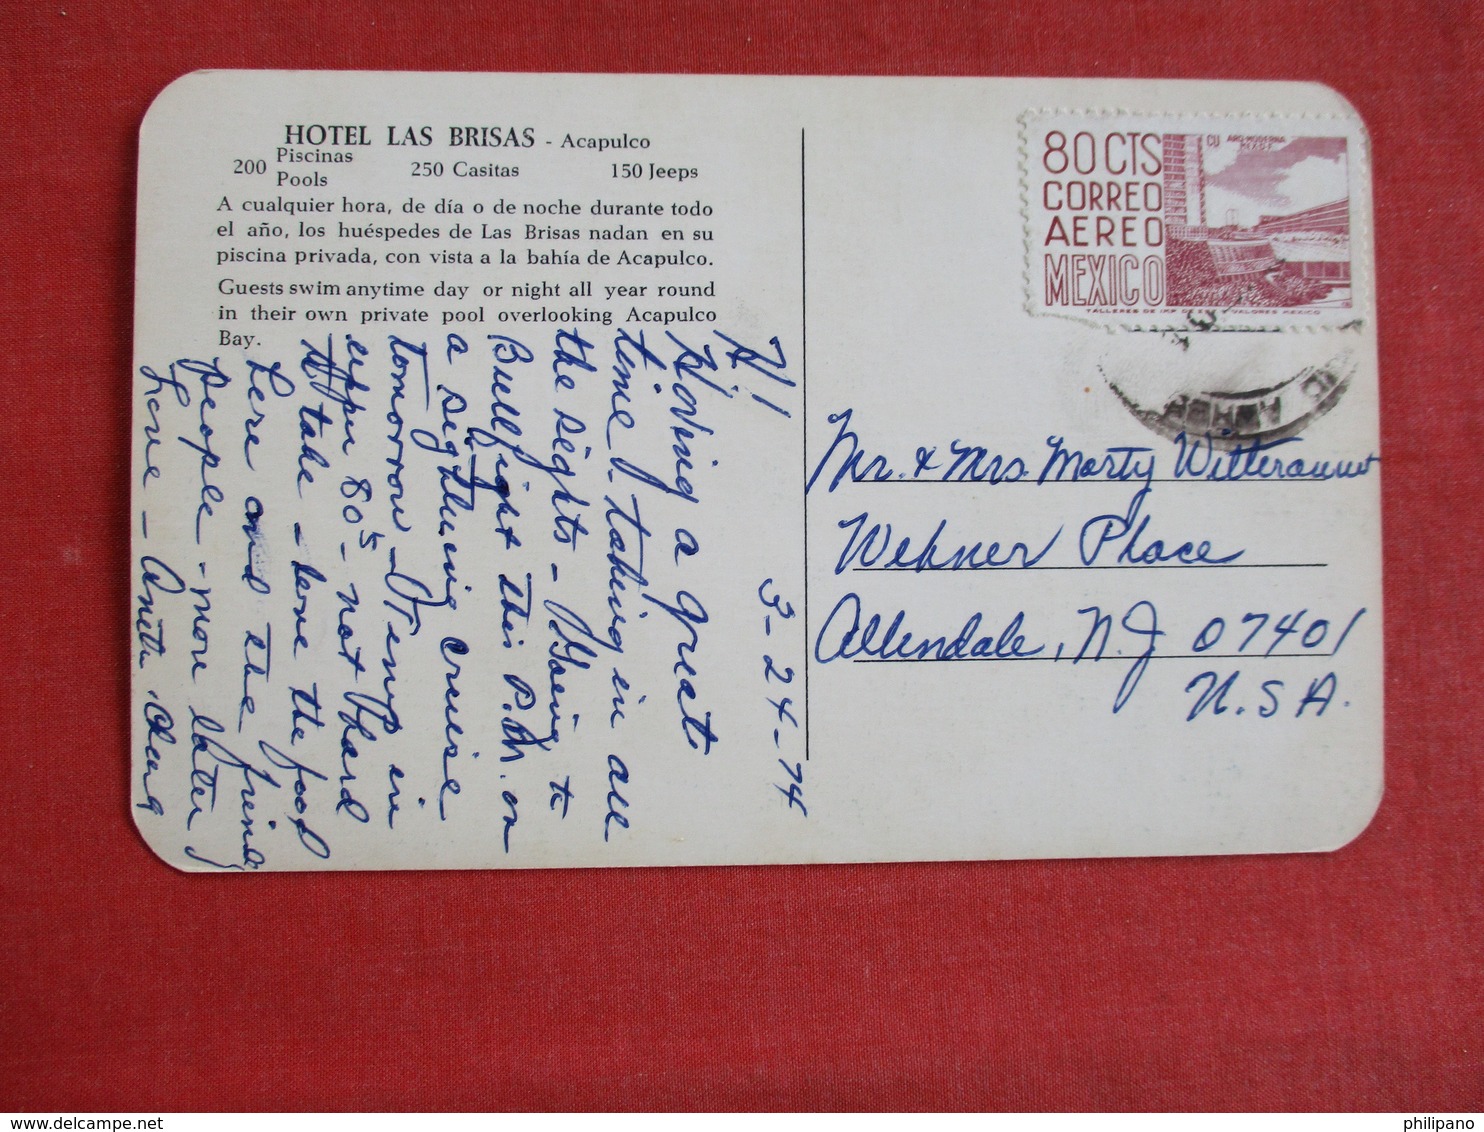 HOTEL LAS BRISAS - Acapulco
200 Piscinas Pools 250 Casitas 150 Jeeps
A cualquier hora, de día o de noche durante todo
el año, los huéspedes de Las Brisas nadan en su
piscina privada, con vista a la bahía de Acapulco.
Guests swim anytime day or night all year round
in their own private pool overlooking Acapulco
Bay.
3-24-74
Hi
Having a great
time - taking in all
the sights - Going to
Bullfight this P.M. on
a sightseeing cruise
tomorrow - Temp in
upper 80s - not hard
to take - love the food
here and the friendly
people - more later
Love -
80 CTS
CORREO
AEREO
MEXICO
CU ARQ. MODERNA
TALLERES DE IMP. DE VALORES MEXICO
Mr. & Mrs. Marty
Wehner Place
Allendale, N.J. 07401
U.S.A.
philipano